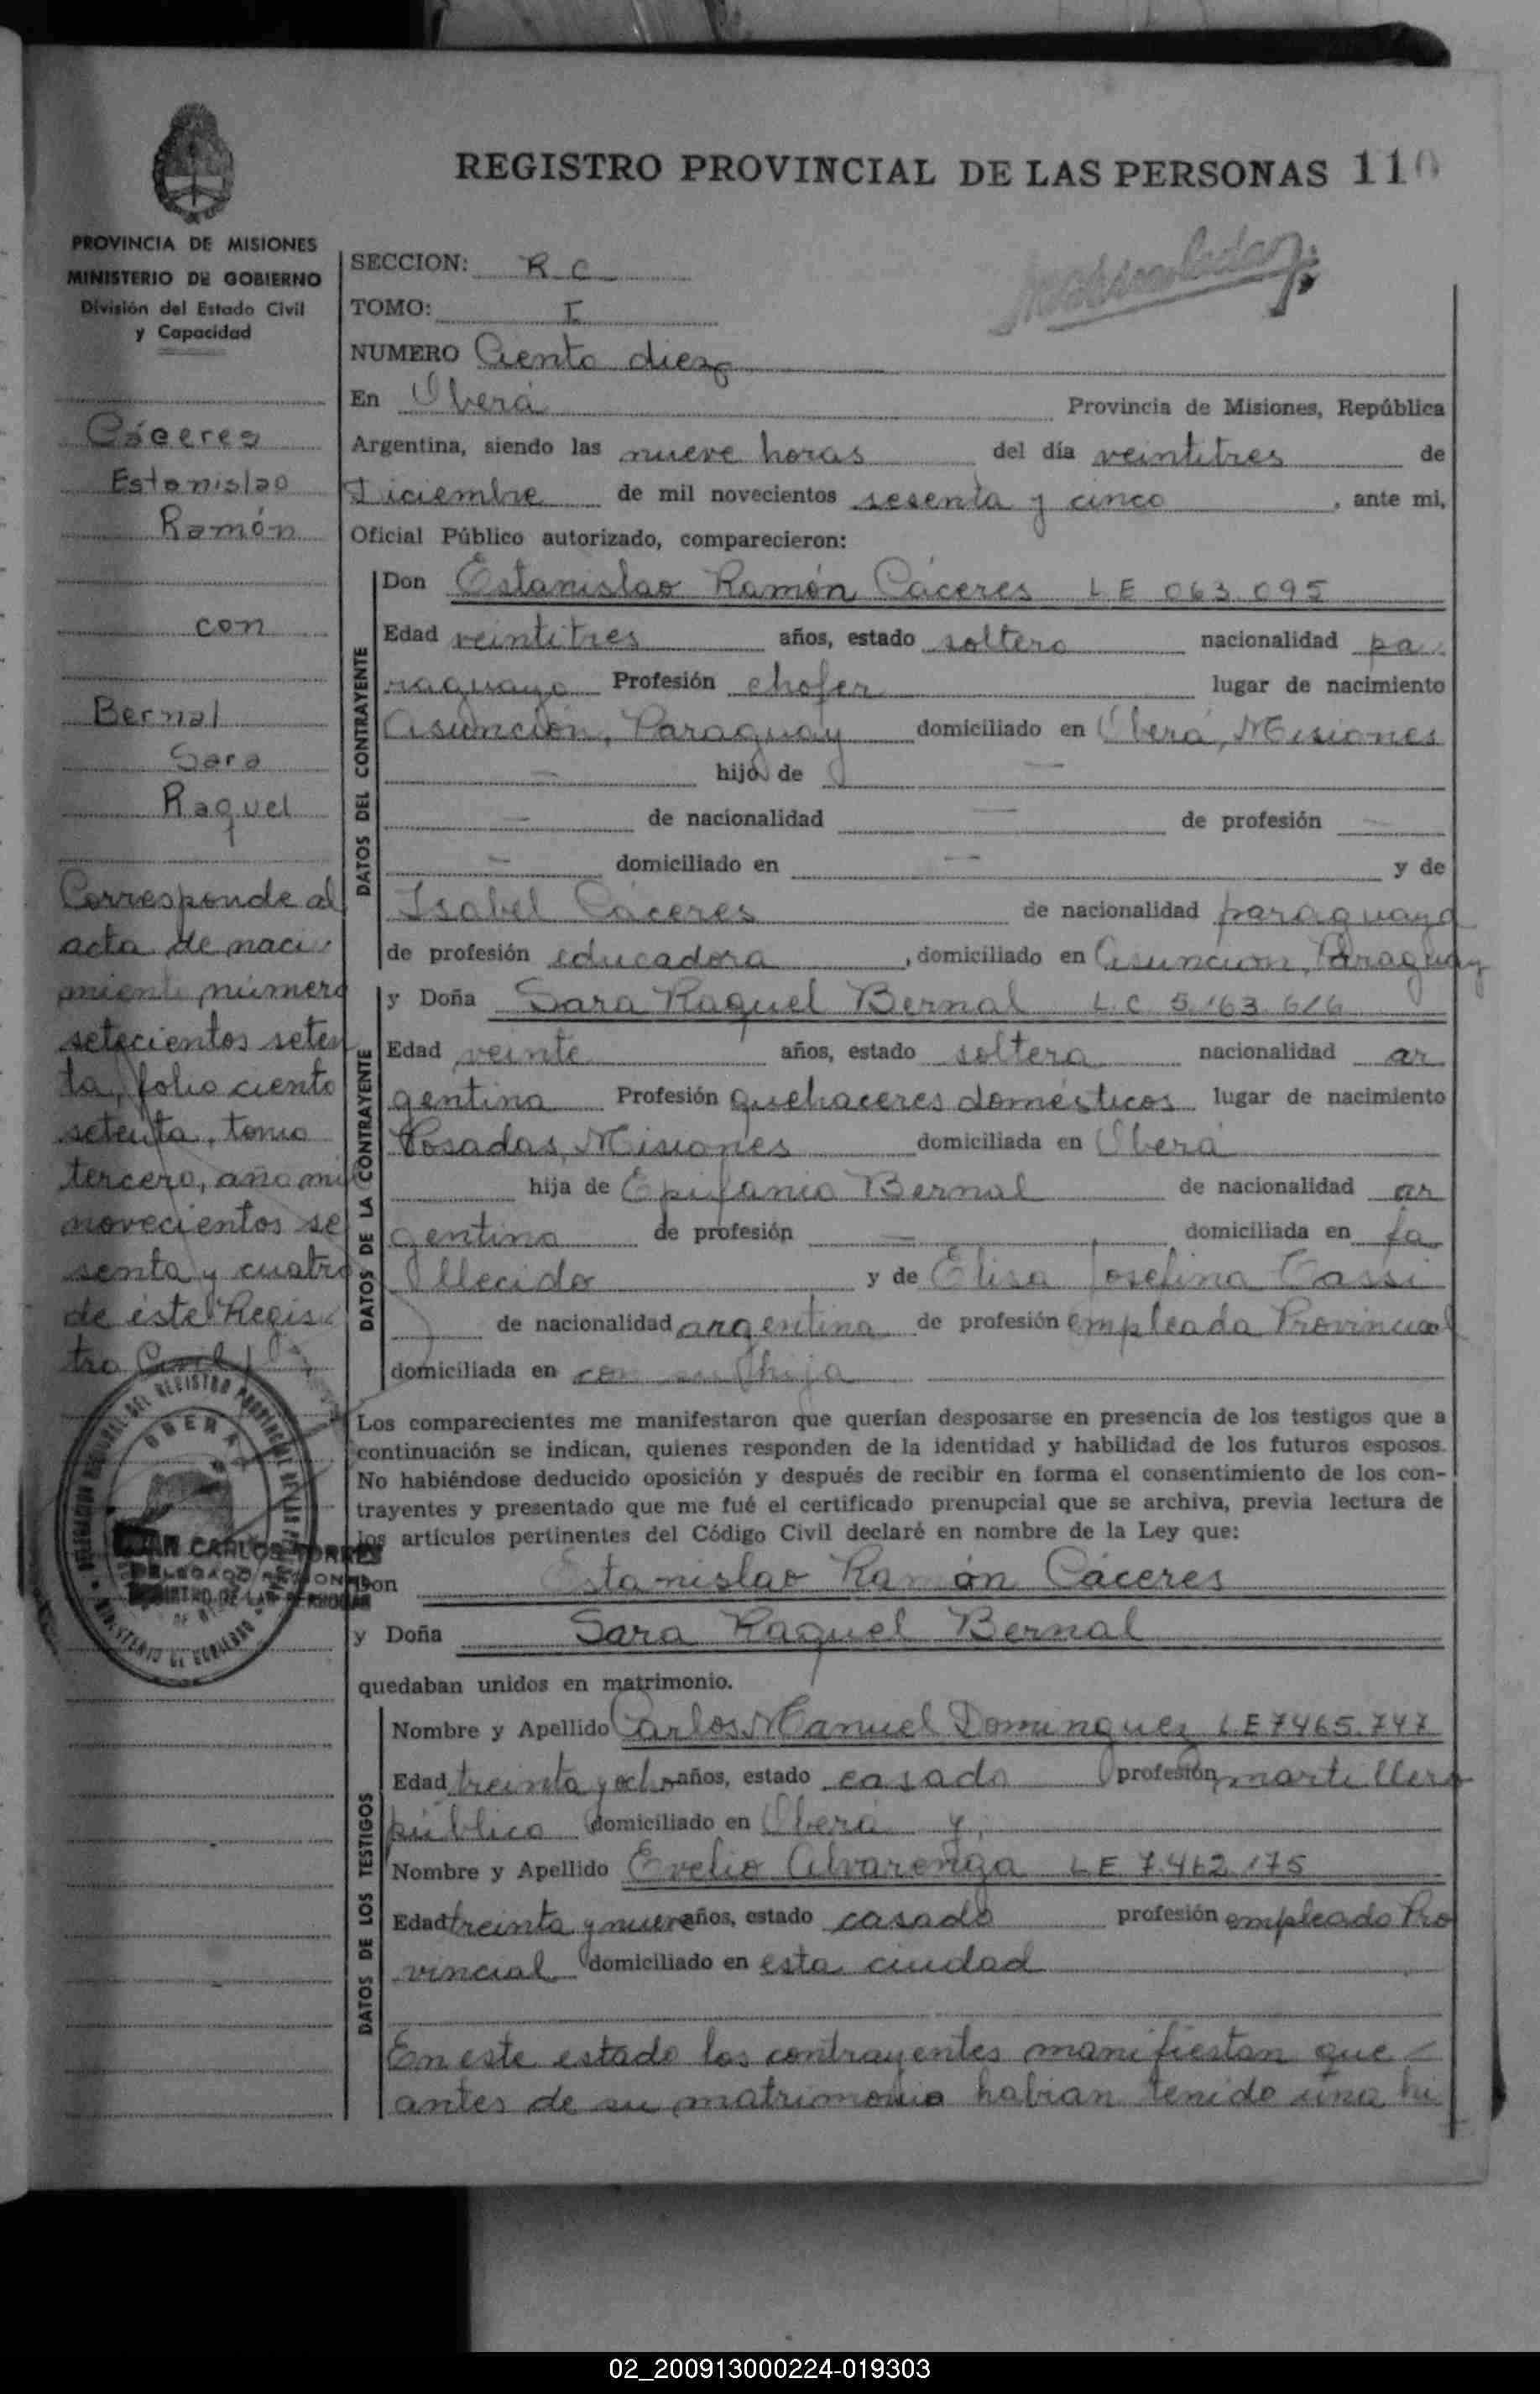 REGISTRO PROVINCIAL DE LAS PERSONAS 110
PROVINCIA DE MISIONES
MINISTERIO DE GOBIERNO
División del Estado Civil
y Capacidad
SECCION: R C
TOMO: I
NUMERO Ciento diez
En Oberá Provincia de Misiones, República
Argentina, siendo las nueve horas del día veintitres de
Diciembre de mil novecientos sesenta y cinco, ante mi,
Oficial Público autorizado, comparecieron:
Cáceres
Estanislao
Ramón
con
Bernal
Sara
Raquel
Corresponde al
acta de naci
miento número
setecientos seten
ta, folio ciento
setenta, tomo
tercero, año mil
novecientos se
senta y cuatro
de este Regis
tro Civil
DATOS DEL CONTRAYENTE
Don Estanislao Ramón Cáceres L E 063.095
Edad veintitres años, estado soltero nacionalidad pa
raguayo Profesión chofer lugar de nacimiento
Asunción, Paraguay domiciliado en Oberá, Misiones
— hijo de —
— de nacionalidad — de profesión —
— domiciliado en — y de
Isabel Cáceres de nacionalidad paraguaya
de profesión educadora, domiciliado en Asunción, Paraguay
DATOS DE LA CONTRAYENTE
y Doña Sara Raquel Bernal L.C 5.163.616
Edad veinte años, estado soltera nacionalidad ar
gentina Profesión quehaceres domésticos lugar de nacimiento
Posadas, Misiones domiciliada en Oberá
hija de Epifanio Bernal de nacionalidad ar
gentino de profesión — domiciliada en fa
llecido y de Elisa Joselina Cassi
de nacionalidad argentina de profesión empleada Provincial
domiciliada en con su hija
Los comparecientes me manifestaron que querían desposarse en presencia de los testigos que a
continuación se indican, quienes responden de la identidad y habilidad de los futuros esposos.
No habiéndose deducido oposición y después de recibir en forma el consentimiento de los con-
trayentes y presentado que me fué el certificado prenupcial que se archiva, previa lectura de
los artículos pertinentes del Código Civil declaré en nombre de la Ley que:
Don Estanislao Ramón Cáceres
y Doña Sara Raquel Bernal
quedaban unidos en matrimonio.
OBERA
CARLOS TORRES
DATOS DE LOS TESTIGOS
Nombre y Apellido Carlos Manuel Dominguez L E 7465.747
Edad treinta y ocho años, estado casado profesión martillero
público domiciliado en Oberá y,
Nombre y Apellido Evelio Alvarenga L E 7.462.175
Edad treinta y nueve años, estado casado profesión empleado Pro
vincial domiciliado en esta ciudad
En este estado los contrayentes manifiestan que
antes de su matrimonio habian tenido una hi
02_200913000224-019303